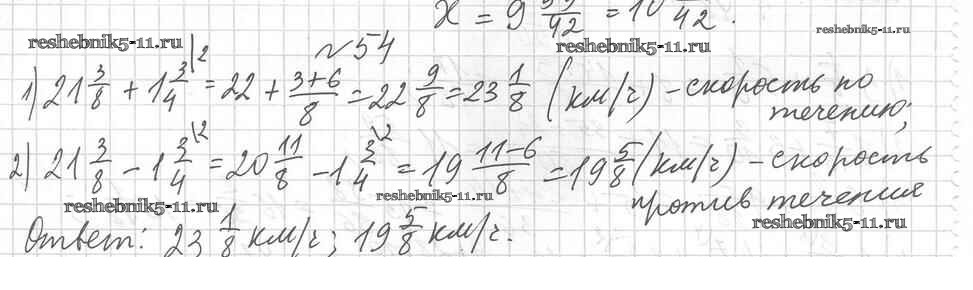 x = 9 59/42 = 10 /42.
reshebnik5-11.ru reshebnik5-11.ru reshebnik5-11.ru
№54
1) 21 3/8 + 1 3/4 |2 = 22 + (3+6)/8 = 22 9/8 = 23 1/8 (км/ч) – скорость по
течению;
2) 21 3/8 – 1 3/4 \2 = 20 11/8 – 1 3/4 \2 = 19 (11–6)/8 = 19 5/8 (км/ч) – скорость
против течения
reshebnik5-11.ru reshebnik5-11.ru reshebnik5-11.ru
Ответ: 23 1/8 км/ч; 19 5/8 км/ч.